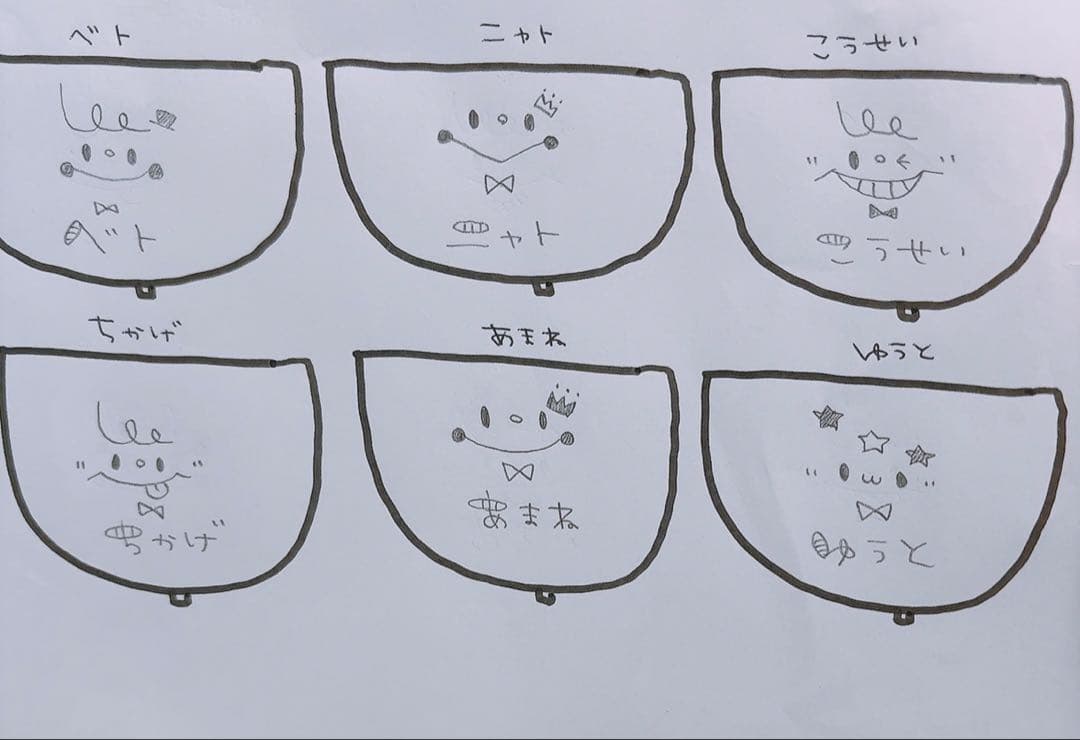 ベト
ニャト
こうせい
ベト
ニャト
こうせい
ちかげ
あまね
ゆうと
ちかげ
あまね
ゆうと